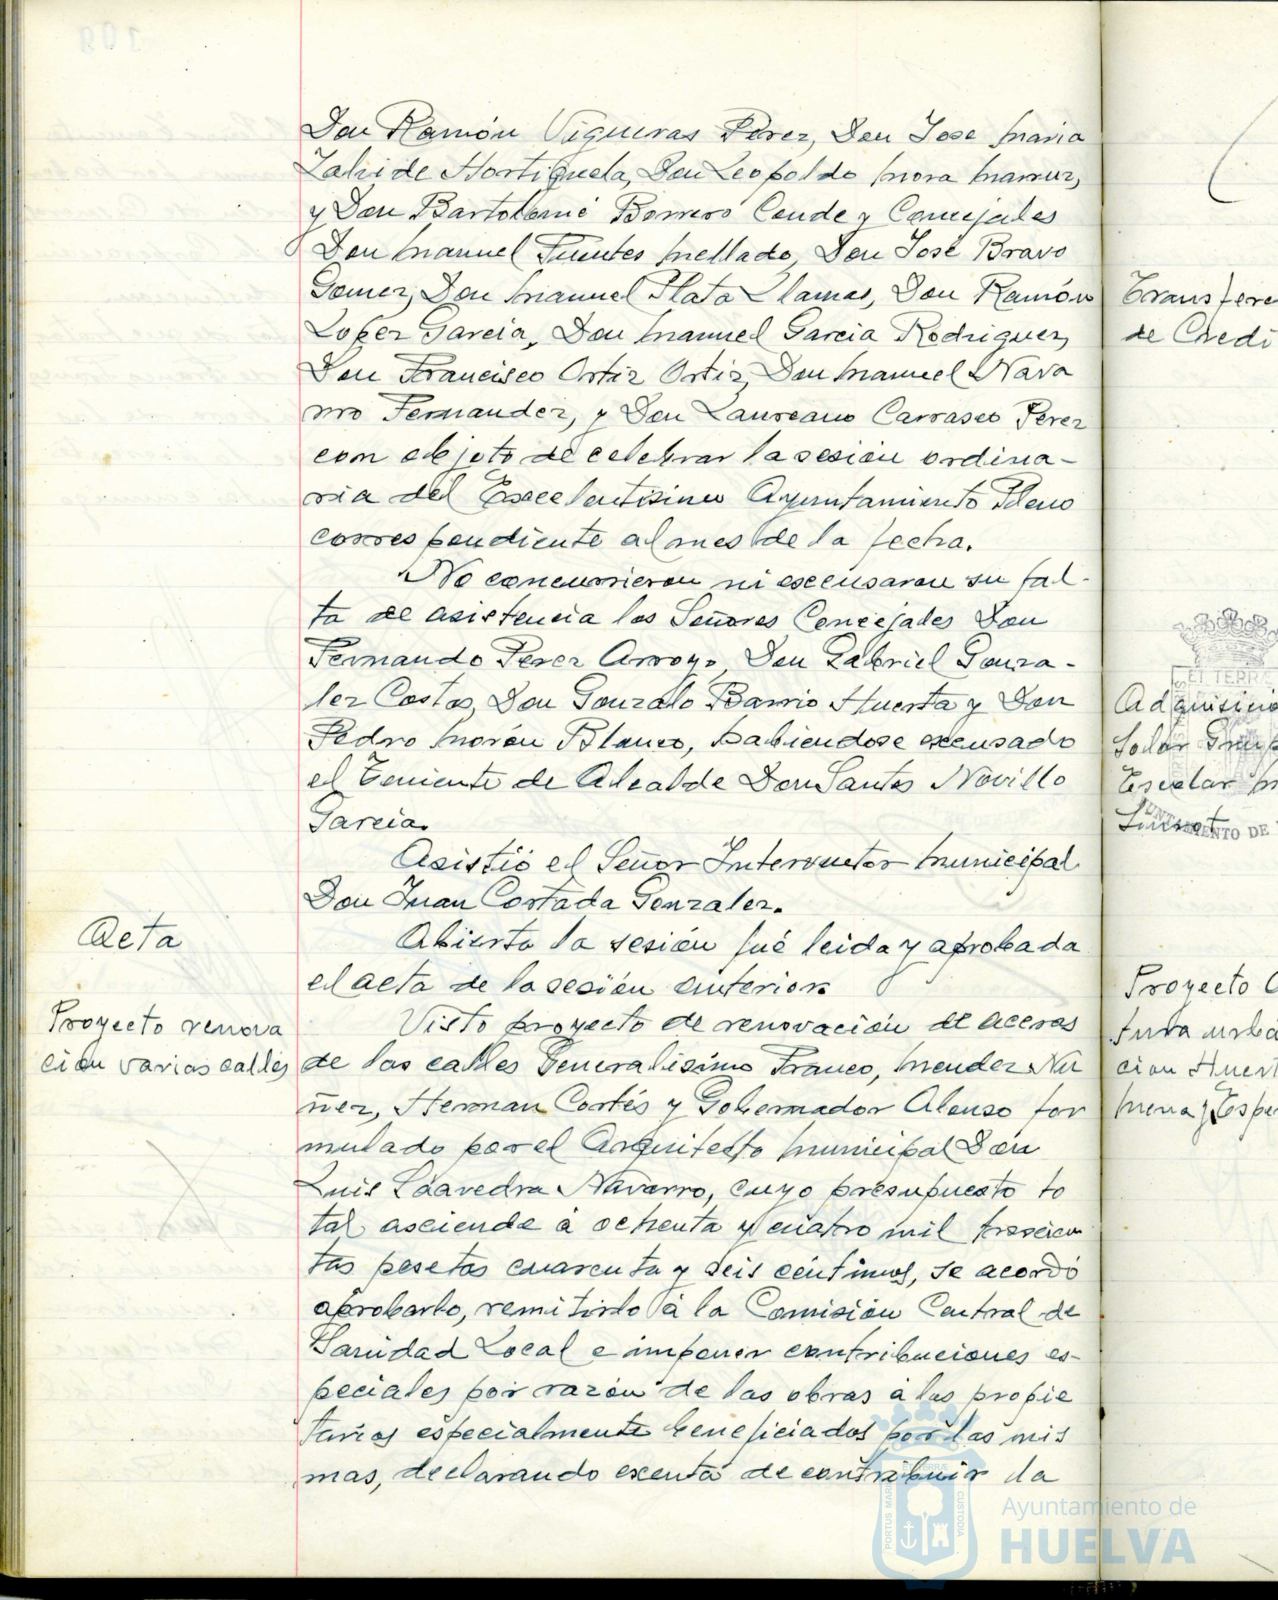 Don Ramón Vigueras Perez, Don Jose Maria
Zalvide Hortiguela, Don Leopoldo Mora Marruz,
y Don Bartolomé Borrero Conde y Concejales
Don Manuel Fuentes Mellado, Don José Bravo
Gomez, Don Manuel Plata Llamas, Don Ramón
Lopez Garcia, Don Manuel Garcia Rodriguez,
Don Francisco Ortiz Ortiz, Don Manuel Nava
rro Fernandez, y Don Laureano Carrasco Perez
con objeto de celebrar la sesión ordina-
ria del Excelentisimo Ayuntamiento Pleno
correspondiente al mes de la fecha.
No concurrieron ni excusaron su fal-
ta de asistencia los Señores Concejales Don
Fernando Perez Arroyo, Don Gabriel Gonza-
lez Costas, Don Gonzalo Barrio Huerta y Don
Pedro Morón Blanco, habiendose excusado
el Teniente de Alcalde Don Santos Novillo
Garcia.
Asistió el Señor Interventor Municipal
Don Juan Cortada Gonzalez.
Acta
Abierta la sesión fué leida y aprobada
el acta de la sesión anterior.
Proyecto renova
cion varias calles
Visto proyecto de renovación de aceras
de las calles Generalisimo Franco, Mendez Nu
ñez, Hernan Cortés y Gobernador Alonso for
mulado por el Arquitecto Municipal Don
Luis Saavedra Navarro, cuyo presupuesto to
tal asciende á ochenta y cuatro mil trescien
tas pesetas cuarenta y seis céntimos, se acordó
aprobarlo, remitirlo á la Comisión Central de
Sanidad Local e imponer contribuciones es-
peciales por razón de las obras á los propie
tarios especialmente beneficiados por las mis
mas, declarando exenta de contribuir la
Transfere
de Credi
Adquisicio
Solar Grup
Escolar
Proyecto
tura urba
cion Huert
Mena y Espe
ET TERRÆ
UNTAMIENTO DE
PORTUS MARIS
ET TERRÆ
CUSTODIA
Ayuntamiento de
HUELVA